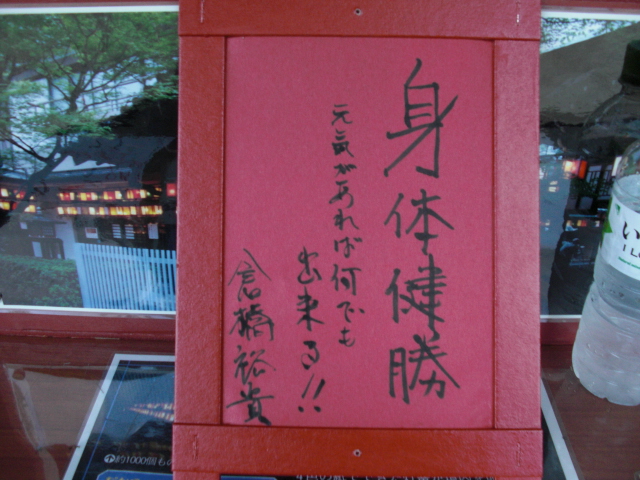 身体健勝
元気があれば何でも
出来る!!
倉橋裕貴
い
1 L
約1000個